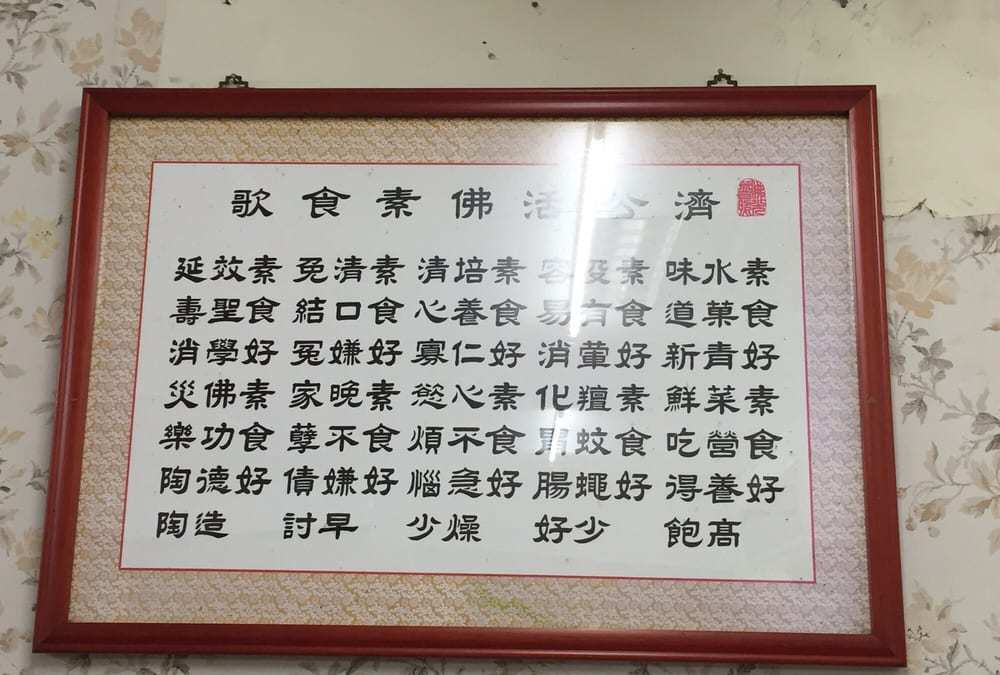 濟公活佛素食歌
素食好素食好
水菓青菜營養高
味道新鮮吃得飽
素食好素食好
沒有葷羶蚊蠅少
容易消化胃腸好
素食好素食好
培養仁心不急燥
清心寡慾煩惱少
素食好素食好
清口嫌晚不嫌早
免結冤家孽債討
素食好素食好
效聖學佛功德造
延壽消災樂陶陶